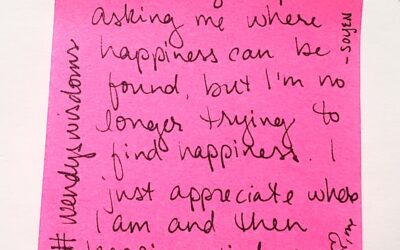 asking me where
happiness can be
found, but I'm no
longer trying to
find happiness. I
just appreciate where
I am and then
#wendyswisdoms
-SOYEN